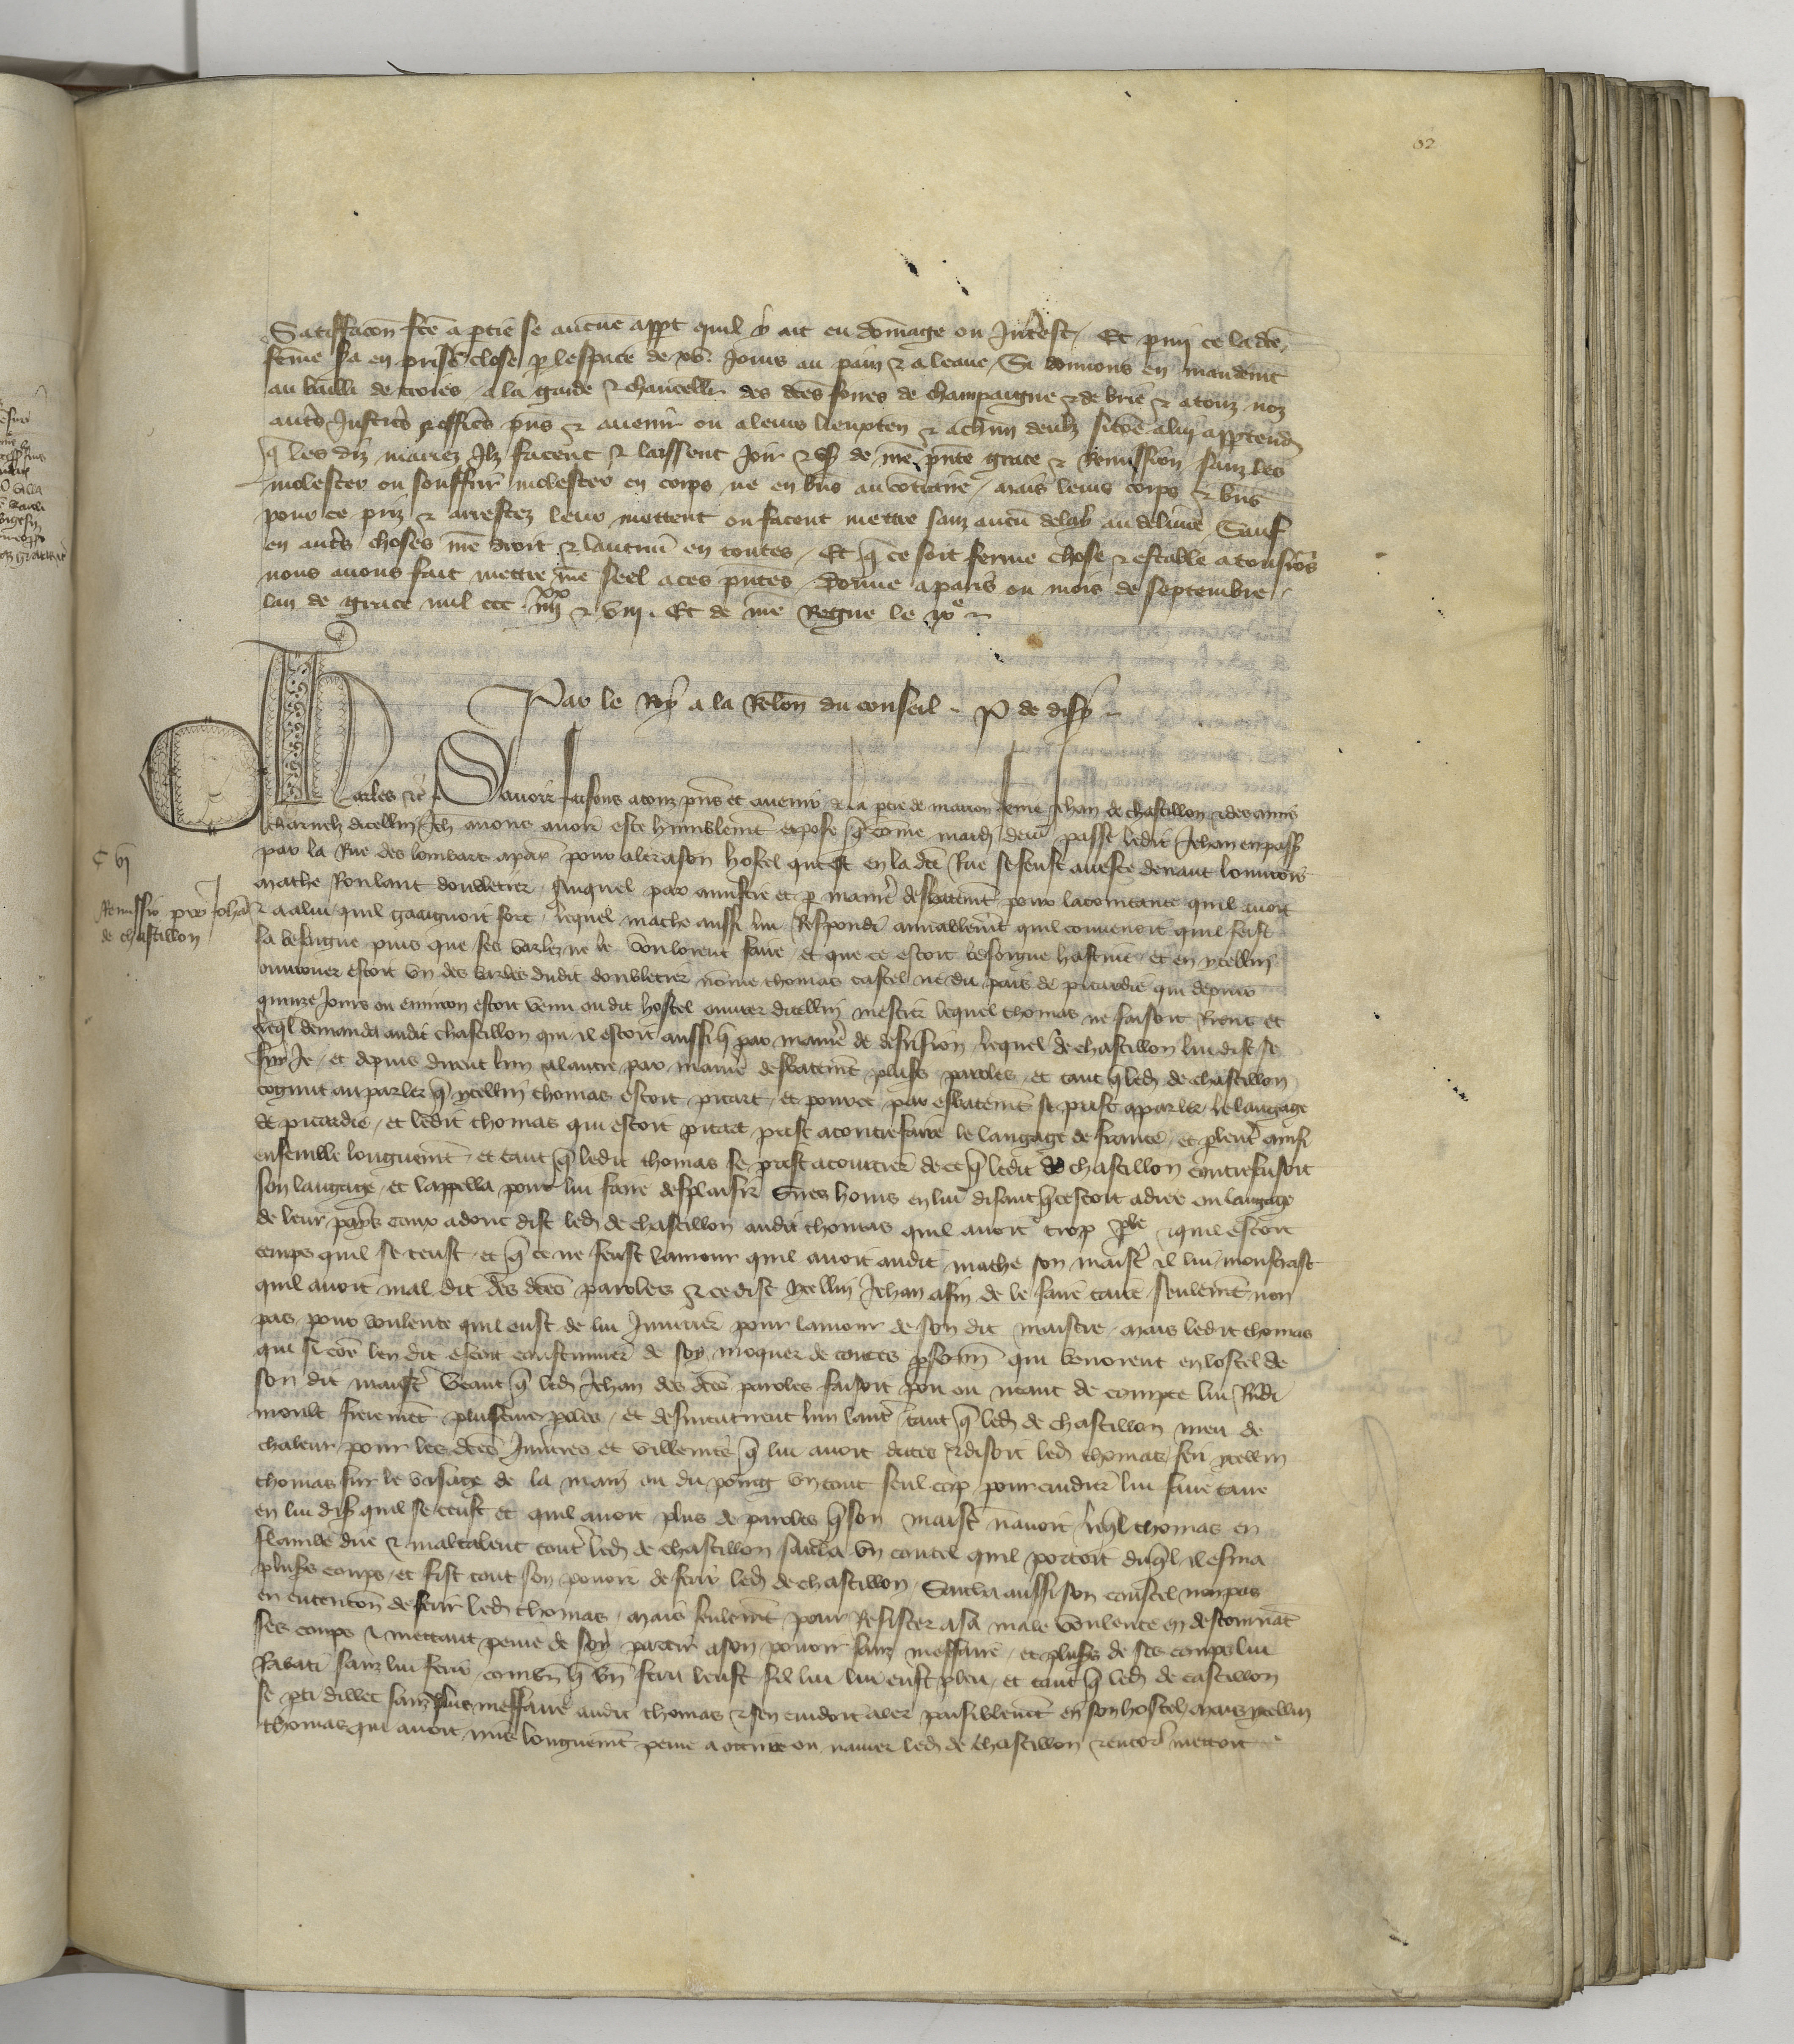 62
Satisfacon fcē a ptie se aucune appt quil y ait en dommage ou Interest Et pmi ce ladcē
feme sa en prison close p lespace de xv Jours au pain & a leaue Si donnons en mandemt
au bailli de troies a la garde & chancellr des dcēs foires de champaigne & de brie & a touz noz
autrs Justicrs & officrs pns & auenir ou a leurs lieuxten & a chūn deulx si cōe a luy apptendr
q les diz mariez Ilz facent & laissent Joir & us de nrē pnte grace & Remission sanz les
molester ou souffrir molester en corps ne en bns au contraire mais leurs corps & bns
pour ce priz & arrestez leur mettent ou facent mettre sanz aucū delay au deliure Sauf
en autrs choses nrē droit & lautruy en toutes Et q ce soit ferme chose & estable a tousiors
nous auons fait mettre nrē seel a ces pntes Donne a paris ou mois de septembre
lan de grace mil ccc iiii xx & viii. Et de nrē Regne le ixe
Par le Roy a la Relon du conseil P de disy
Charles &c Sauoir faisons a touz pns et auenir de la ptie de marion feme Jehan de chastillon & des amis
charnelz dicellui Jeh nous auoir este humblemt expose q cōme mardi derr passe ledit Jehan en passt
par la Rue des lombars a paris pour aler a son hostel qui est en la dcē Rue se feust areste deuant louuroir
mathe Roulant doubletier Auquel par amistie et p manre desbatemt pour lacointance quil auoit
C vi
Remissio pro Johe de chastillon
& a lui quil gaaignoit fort lequel mathe aussi lui Respondi amiablemt quil conuenoit quil feist
la besongne puis que ses varlez ne le vouloient faire et que ce estoit besoigne hastiue et en ycellui
ouurouer estoit un des varles dudit doubletier nōme thomas castel ne du pais de picardie qui depuis
quinze Jours ou enuiron estoit venu oudit hostel ouurer dicellui mestier lequel thomas ne faisoit Riens et
leql demanda audit chastillon qui il estoit aussi q par manre de desrision lequel de chastillon lui dist se
suy Je et depuis dirent lun a lautre par manre desbatemt plus paroles et tant q led de chastillon
cognut au parler q ycellui thomas estoit picart et pour ce par esbatemt se prist a parler le langage
de picardie et ledit thomas qui estoit picart prist a contrefaire le langage de france et plerent ainsi
ensemble longuemt et tant q ledit thomas se prist a courcier de ce q ledit de chastillon contrefaisoit
son langage et lappella pour lui faire desplaisir Sires homs en lui disant q cestoit a dire ou langage
de leur pays coux adonc dist led de chastillon audit thomas quil auoit trop ple & quil estoit
temps quil se teust et q ce ne feust lamour quil auoit audit mathe son maistr il lui monstrast
quil auoit mal dit des dcēs paroles & ce dist ycellui Jehan afin de le faire taire seulemt non
pas pour voulente quil eust de lui Iniurier pour lamour de son dit maistre mais ledit thomas
qui si cōe len dit estoit coustumier de soy moquer de toutes psonn qui venoient en lostel de
son dit maistr Veant q led Jehan des dcēs paroles faisoit pou ou neant de compte lui Rndi
moult fierement plusieurs poles et desmentirent lun lautr tant q led de chastillon meu de
chaleur pour les dcēs Iniures et villenies q lui auoit dictes & disoit led thomas feri ycellui
thomas sur le visage de la main ou du poing un tout seul cop pour cuidier lui faire taire
en lui dist quil se teust et quil auoit plus de paroles q son maistr nauoit leql thomas en
flambe dire & maltalent contr led de chastillon sacha un coutel quil portoit duql il esma
plus coups et fist tout son pouoir de ferir led de chastillon Sacha aussi son coustel non pas
en entencon de ferir led thomas mais seulemt pour Resister a sa male voulente en destournat
ses coups & mettant peine de soy partir a son pouoir sanz meffaire et plus de ses coups lui
Rabati sanz lui ferir combn q bn feru leust se lui lui eust pleu et tant q led de castillon
se pti dillec sanz plus meffaire audit thomas & sen cuidoit aler paisiblemt en son hostel mais ycellui
thomas qui auoit mis longuemt peine a occire ou naurer led de chastillon & encor mettoit